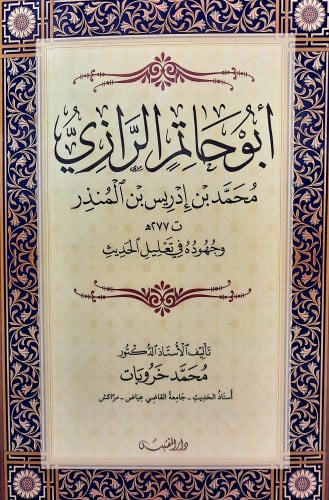 أبو حَاتِمٍ الرَّازِيُّ
مُحَمَّد بْن إِدْرِيس بْن الْمُنْذِر
ت ٢٧٧هـ
وَجُهُودُهُ فِي تَعْلِيلِ الْحَدِيثِ
تَأْلِيفُ الْأُسْتَاذِ الدُّكْتُور
مُحَمَّد خَرُّوبَات
أُسْتَاذُ الْحَدِيثِ - جَامِعَة الْقَاضِي عِيَاض - مَرَّاكش
دار المقتبس